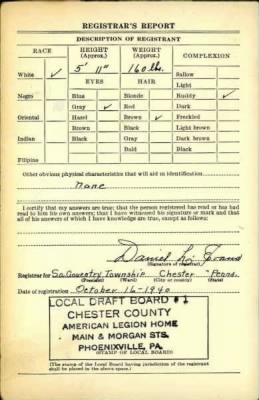 REGISTRAR'S REPORT
DESCRIPTION OF REGISTRANT
RACE HEIGHT (Approx.) WEIGHT (Approx.) COMPLEXION
White ✓ 5' 11" 160 lbs. Sallow
EYES HAIR Light
Negro Blue Blonde Ruddy ✓
Gray ✓ Red Dark
Oriental Hazel Brown ✓ Freckled
Brown Black Light brown
Indian Black Gray Dark brown
Bald Black
Filipino
Other obvious physical characteristics that will aid in identification
None
I certify that my answers are true; that the person registered has read or has had
read to him his own answers; that I have witnessed his signature or mark and that
all of his answers of which I have knowledge are true, except as follows:
Daniel L. Evans
(Signature of registrar)
Registrar for So. Coventry Township Chester Penna.
(Precinct) (Ward) (City or county) (State)
Date of registration October 16-1940
LOCAL DRAFT BOARD # 1
CHESTER COUNTY
AMERICAN LEGION HOME
MAIN & MORGAN STS.
PHOENIXVILLE, PA.
(STAMP OF LOCAL BOARD)
(The stamp of the Local Board having jurisdiction of the registrant
shall be placed in the above space.)